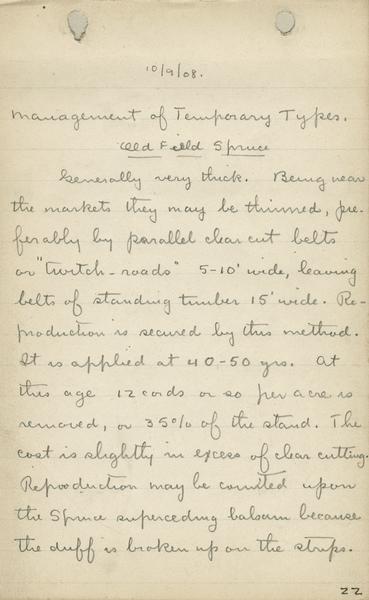 10/9/08.
Management of Temporary Types.
Old Field Spruce
Generally very thick. Being near
the markets they may be thinned, pre-
ferably by parallel clear cut belts
or "twitch-roads" 5-10' wide, leaving
belts of standing timber 15' wide. Re-
production is secured by this method.
It is applied at 40-50 yrs. At
this age 12 cords or so per acre is
removed, or 35% of the stand. The
cost is slightly in excess of clear cutting.
Reproduction may be counted upon
the Spruce superceding balsam because
the duff is broken up on the strips.
22